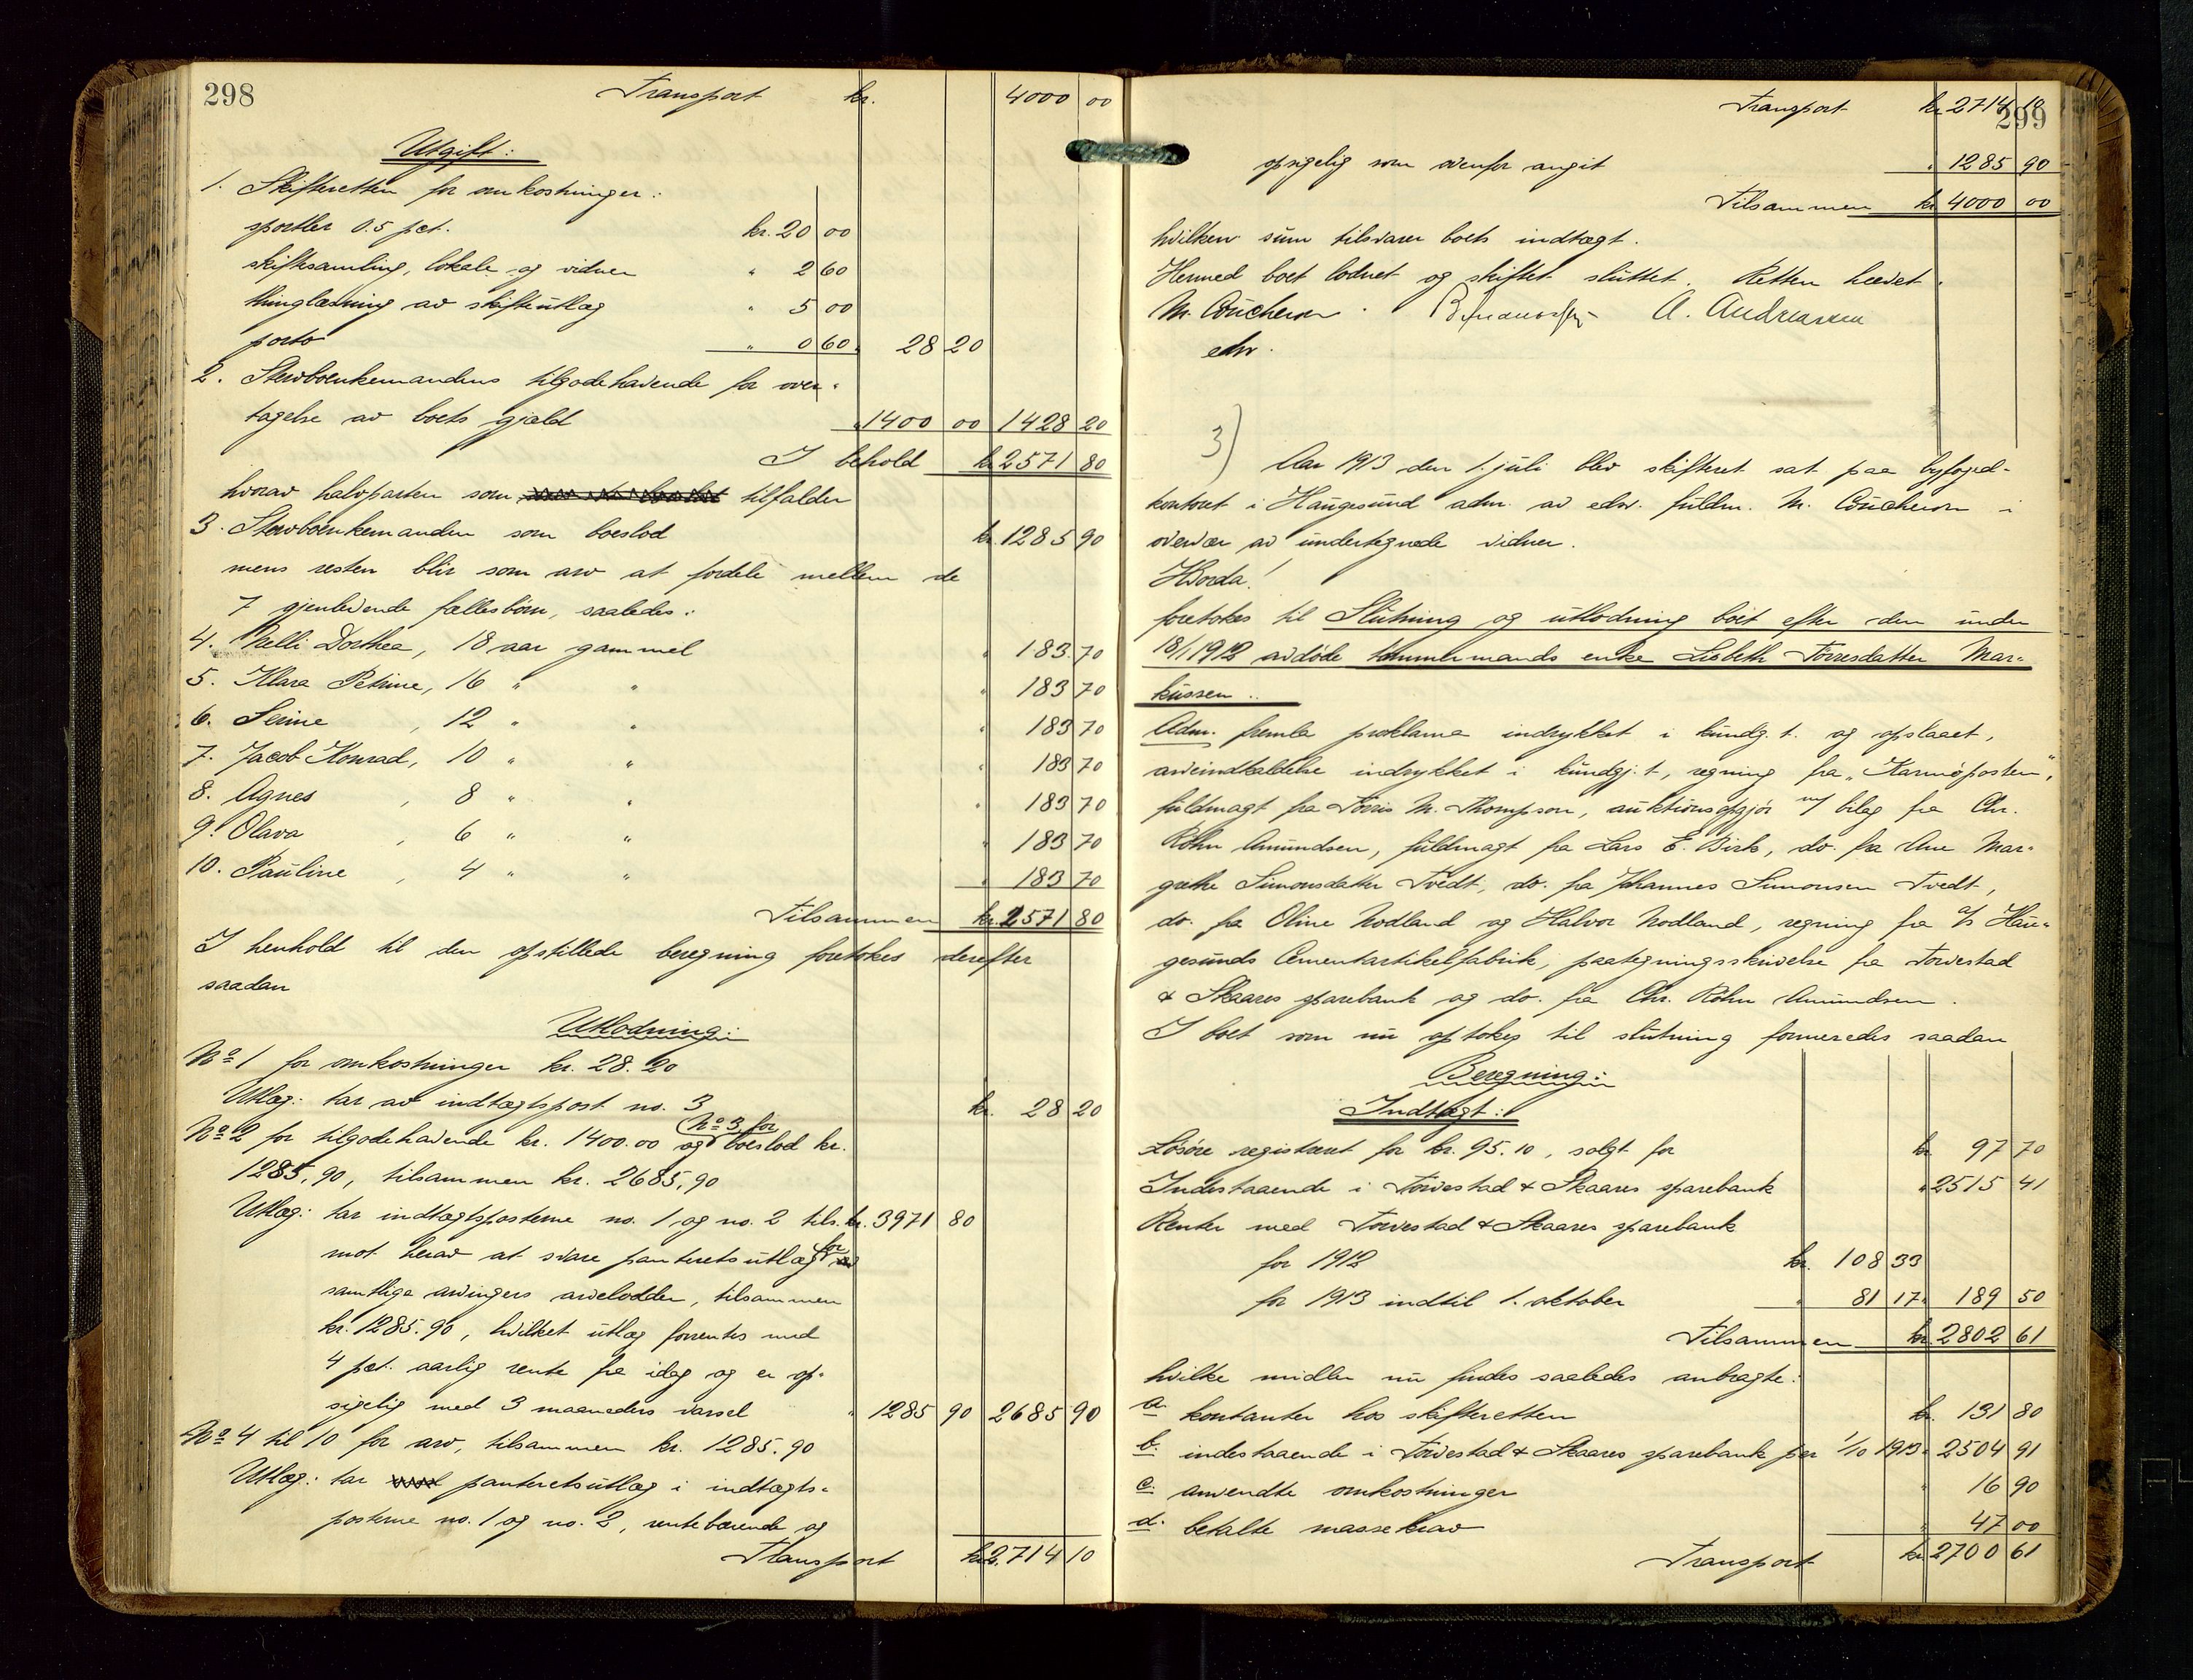 298
Transport kr. 4000 00
Utgift:
1. Skifteretten for omkostninger:
sportler 0.5 pct. kr. 20 00
skiftesamling, lokale og vidner " 2 60
thinglæsning av skifteutlæg " 5 00
porto " 0 60 28 20
2. Stervboenkemandens tilgodehavende for over-
tagelse av boets gjæld " 1400 00 1428 20
I behold kr. 2571 80
hvorav halvparten som tilfalder
3. Stervboenkemanden som boeslod kr. 1285 90
mens resten blir som arv at fordele mellem de
7 gjenlevende fællesbörn, saaledes:
4. Nelli Dorthea, 18 aar gammel " 183 70
5. Klara Petrine, 16 " " " 183 70
6. Serine , 12 " " " 183 70
7. Jacob Konrad, 10 " " " 183 70
8. Agnes , 8 " " " 183 70
9. Olava , 6 " " " 183 70
10. Pauline , 4 " " " 183 70
Tilsammen kr. 2571 80
I henhold til den opstillede beregning foretokes derefter
saadan
Utlodning:
No 1 for omkostninger kr. 28.20
Utlæg: tar av indtægtspost no. 3 kr. 28 20
No 2 for tilgodehavende kr. 1400.00 og No 3 for boeslod kr.
1285,90, tilsammen kr. 2685,90
Utlæg: tar indtægtsposterne no. 1 og no. 2 tils. kr. 3971 80
mot herav at svare panteretsutlæg for
samtlige arvingers arvelodder, tilsammen
kr. 1285.90, hvilket utlæg forrentes med
4 pct. aarlig rente fra idag og er op-
sigelig med 3 maaneders varsel " 1285 90 2685 90
No 4 til 10 for arv, tilsammen kr. 1285.90
Utlæg: tar panteretsutlæg i indtægts-
posterne no. 1 og no. 2, rentebærende og
Transport kr. 2714 10
299
Transport kr. 2714 10
opsigelig som ovenfor angit " 1285 90
Tilsammen kr. 4000 00
hvilken sum tilsvarer boets indtægt.
Hermed boet lodnet og skiftet sluttet. Retten hævet.
M. Coucheron. A. Andreassen
edsv.
3)
Aar 1913 den 1. juli blev skifteret sat paa byfoged-
kontoret i Haugesund adm. av edsv. fuldm. M. Coucheron i
overvær av undertegnede vidner.
Hvorda!
foretokes til Slutning og utlodning boet efter den under
18/1 1912 avdöde tömmermands enke Lisbeth Törresdatter Mar-
kussen.
Adm. fremla proklama indrykket i kundg.t. og opslaaet,
arveindkaldelse indrykket i kundgj.t, regning fra "Karmöposten",
fuldmagt fra Törris M. Thompson, auktionsopgjör m/ bilag fra Chr.
Röhn Amundsen, fuldmagt fra Lars E. Birk, do. fra Ane Mar-
grethe Simonsdatter Tvedt, do. fra Johannes Simonsen Tvedt,
do. fra Oline Nodland og Halvor Nodland, regning fra A/s Hau-
gesunds Cementartikelfabrik, paategningsskrivelse fra Torvestad
& Skaares sparebank og do. fra Chr. Röhn Amundsen.
I boet som nu optokes til slutning formeredes saadan
Beregning:
Indtægt:
Lösöre registreret for kr. 95.10, solgt for kr. 97 70
Indestaaende i Torvestad & Skaares sparebank " 2515 41
Renter med Torvestad & Skaares sparebank
for 1912 kr. 108 33
for 1913 indtil 1. oktober " 81 17 " 189 50
Tilsammen kr. 2802 61
hvilke midler nu findes saaledes anbragte:
a. kontanter hos skifteretten kr. 131 80
b. indestaaende i Torvestad & Skaares sparebank per 1/10 1913 " 2504 91
c. anvendte omkostninger " 16 90
d. betalte massekrav " 47 00
Transport kr. 2700 61